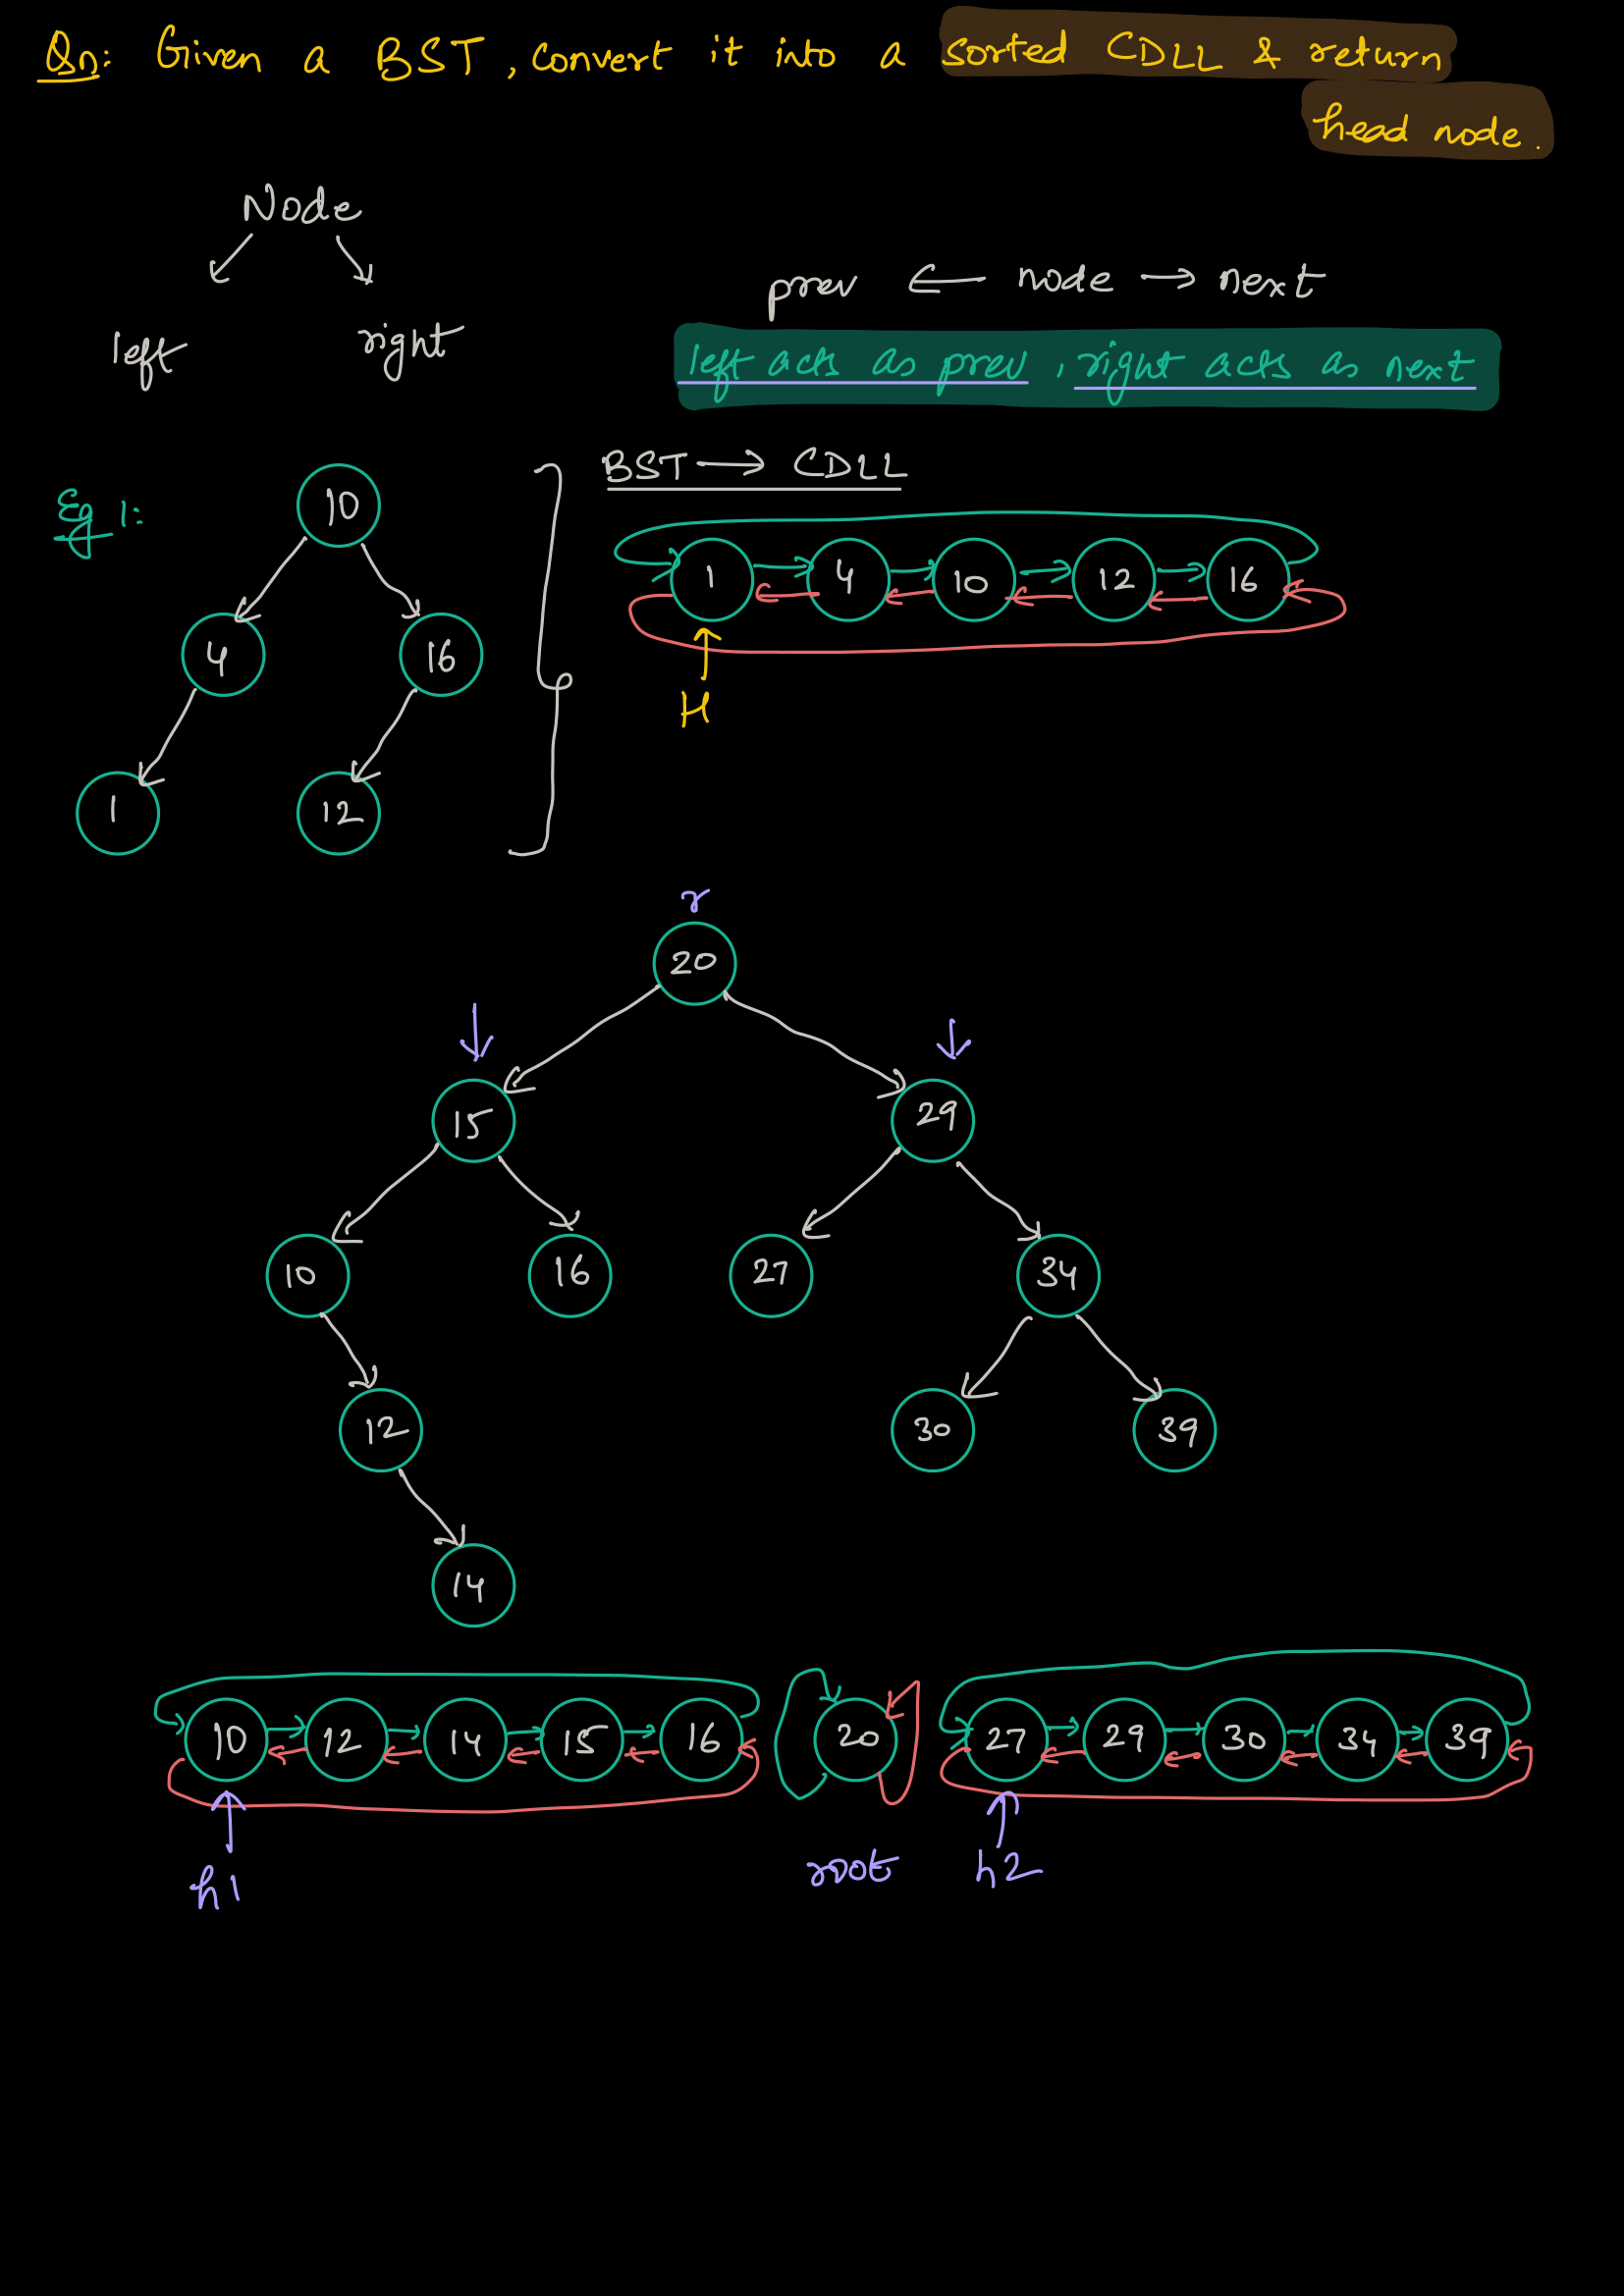 Qn: Given a BST, convert it into a sorted CDLL & return
head node.
Node
left right
prev ← node → next
left acts as prev, right acts as next
Eg 1:
BST → CDLL
10
4 16
1 12
1 4 10 12 16
H
r
20
15 29
10 16 27 34
12 30 39
14
10 12 14 15 16 20 27 29 30 34 39
h1 root h2